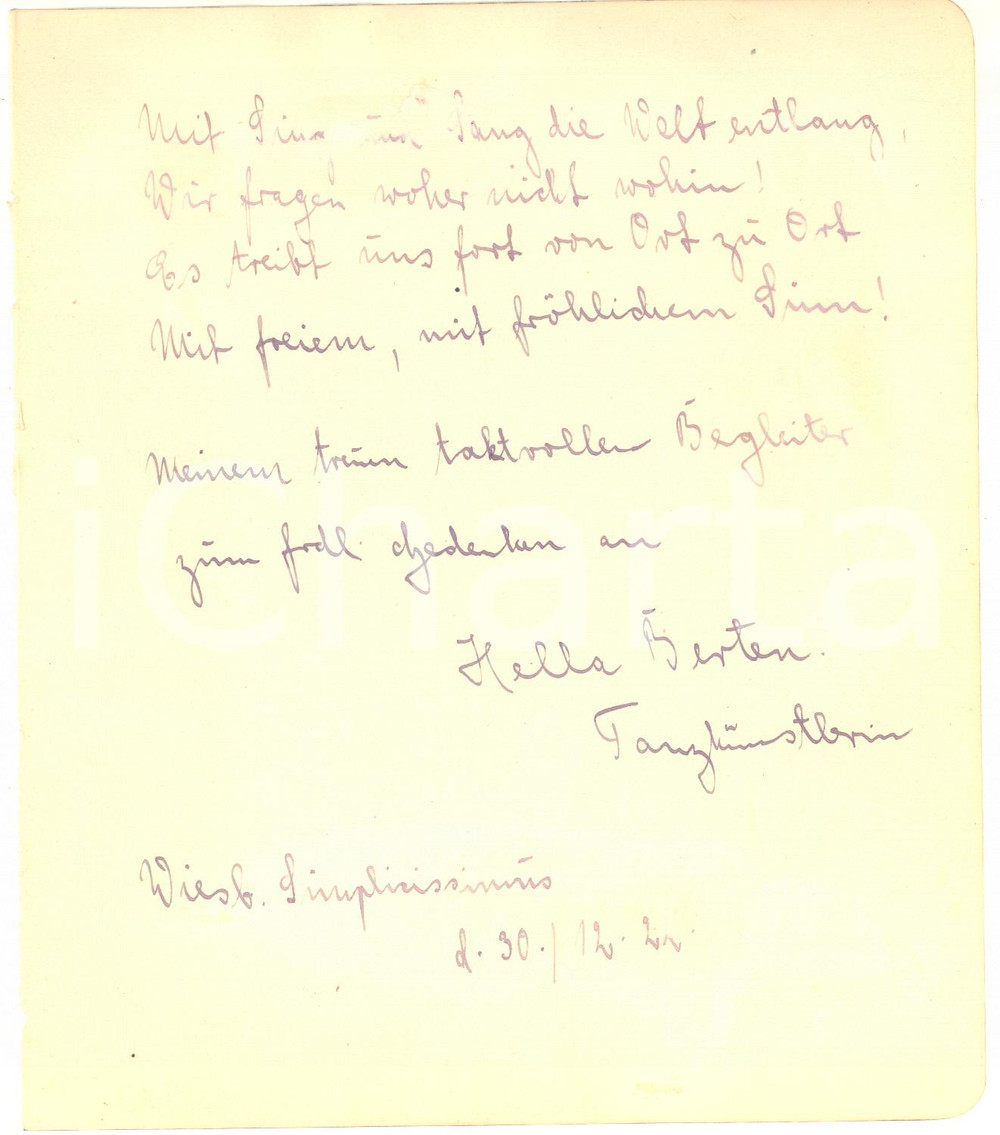 Mit Sing und Sang die Welt entlang,
Wir fragen woher nicht wohin!
Es treibt uns fort von Ort zu Ort
Mit freiem, mit fröhlichem Sinn!
Meinem treuen taktvollen Begleiter
zum frdl. Gedenken an
Hella Berten.
Tanzkünstlerin
Wiesb. Simplicissimus
d. 30./12. 22.
iCharta